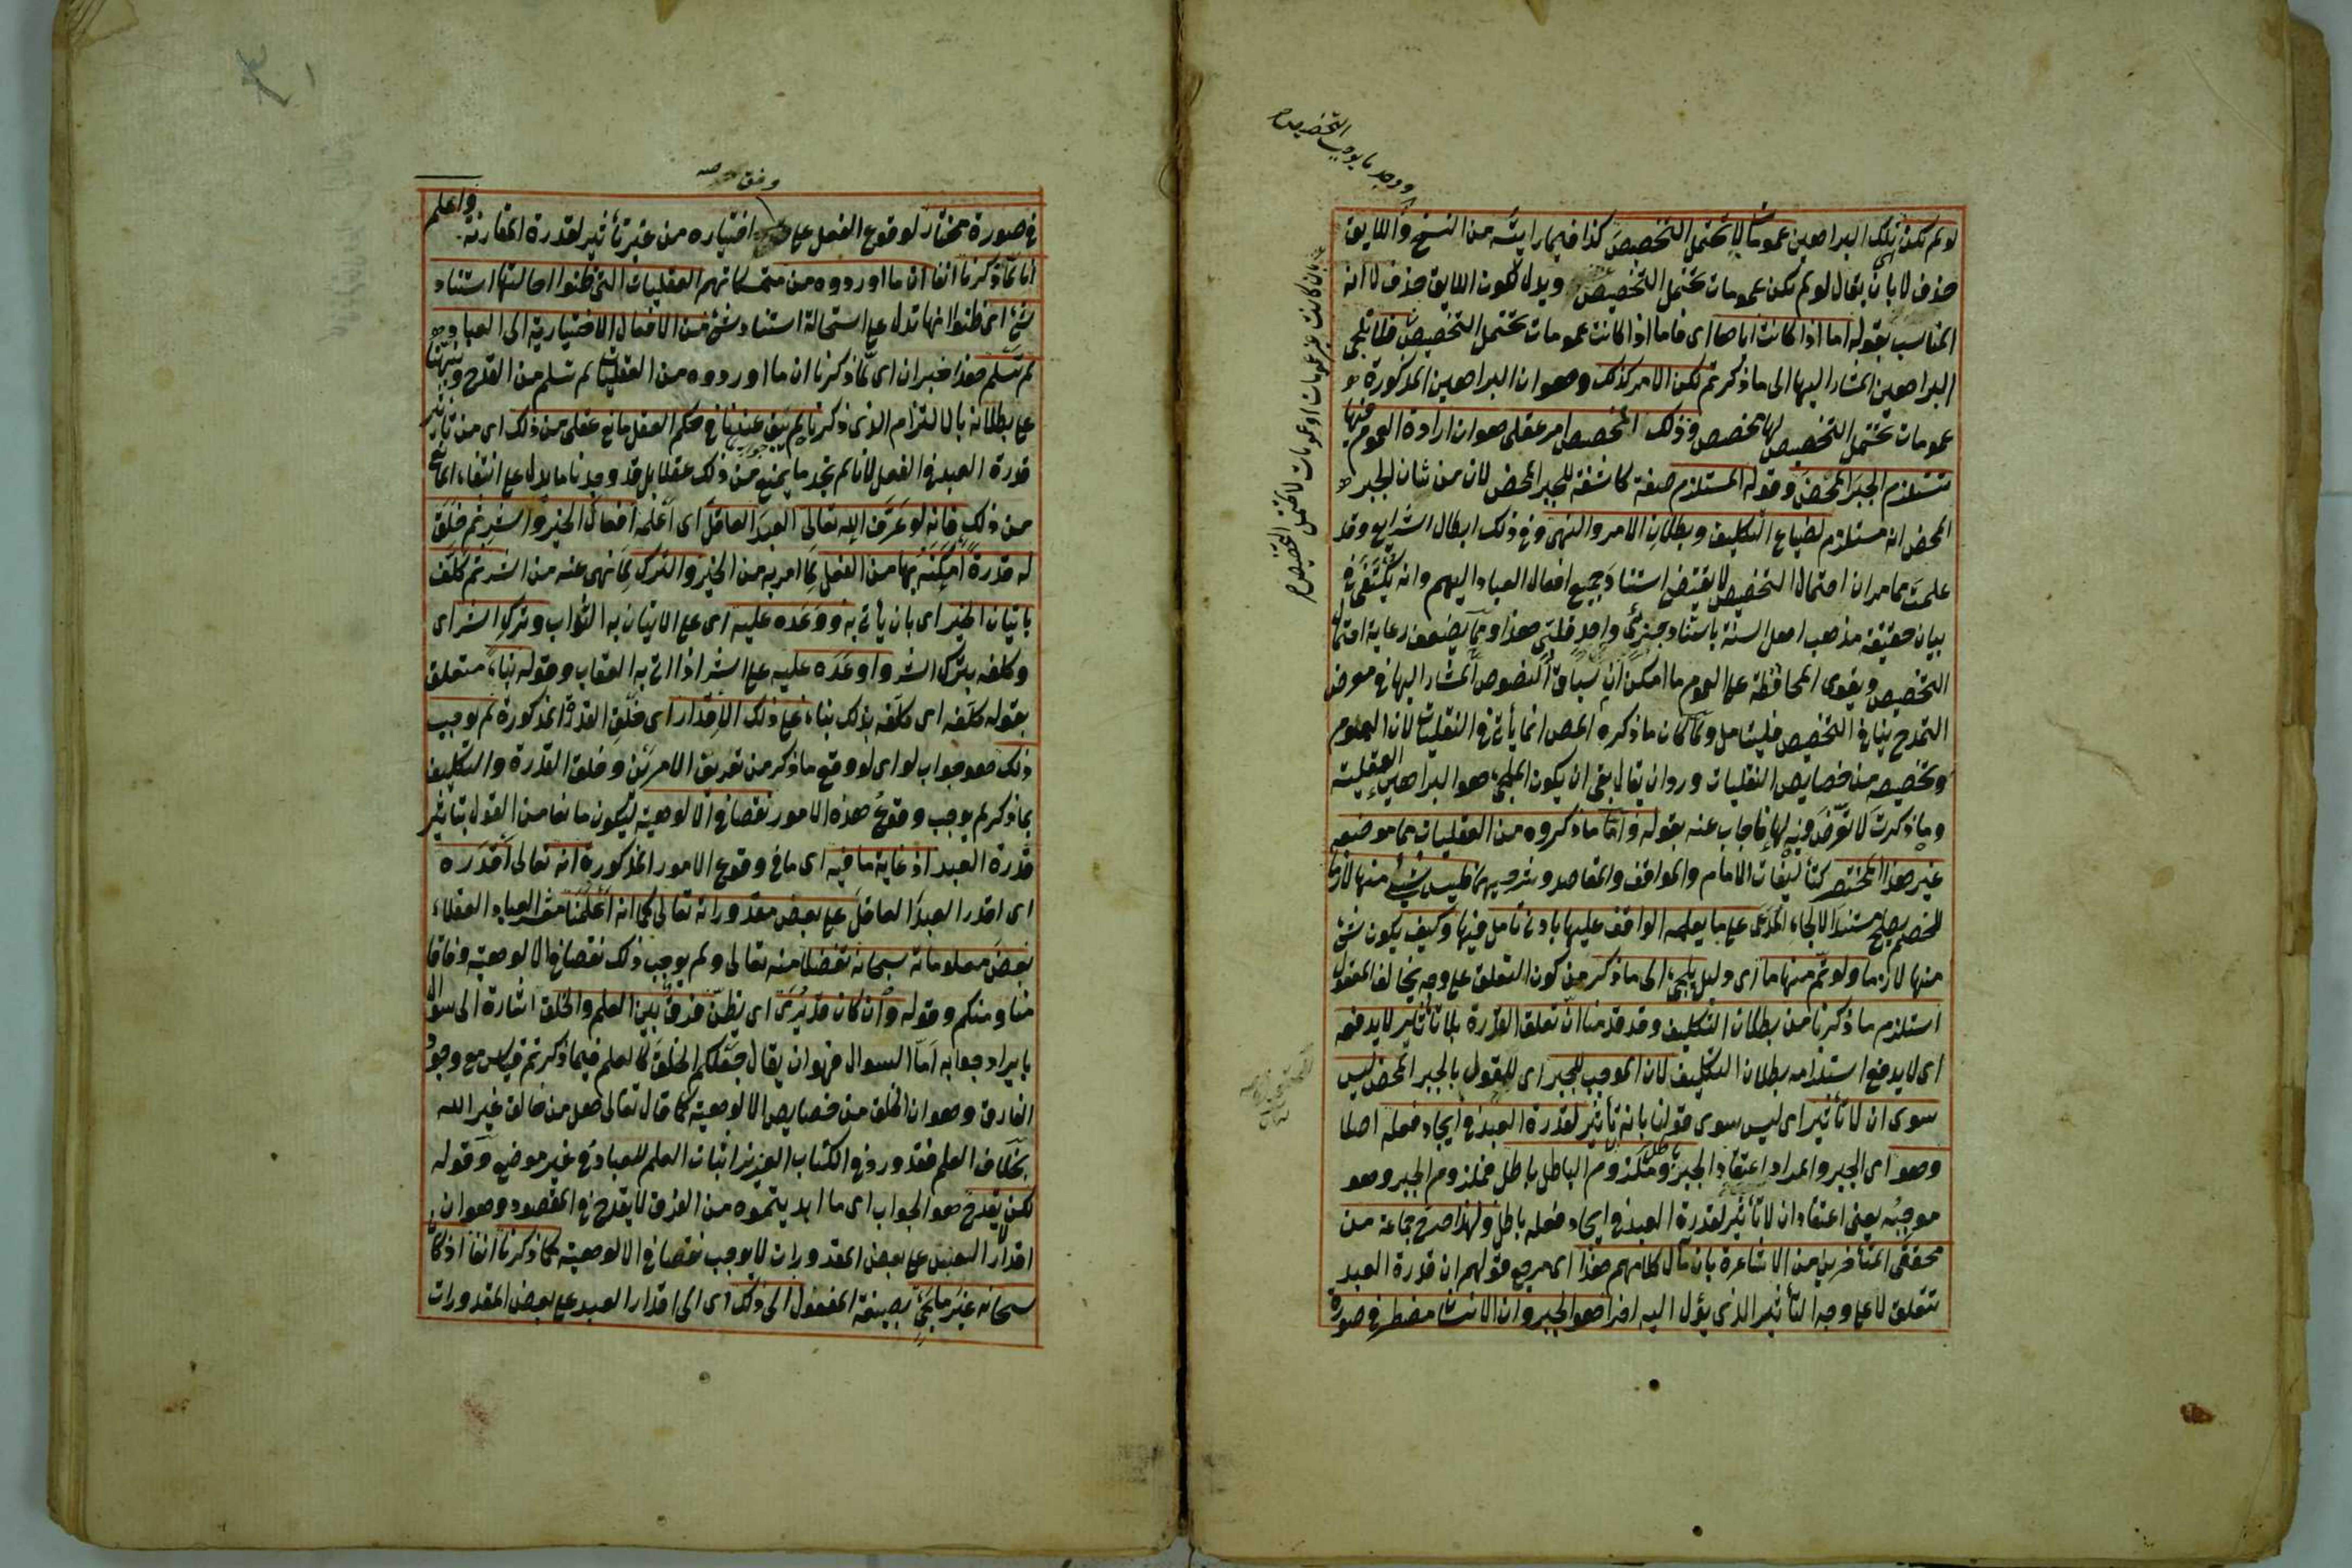 لو لم تكن تلك البراهين عمومات لا تحتمل التخصيص كذا فيما رايته من النسخ واللايق
حذف لا بان يقال لو لم تكن عمومات تحتمل التخصيص ويدل لكون اللايق حذف لا انه
المناسب بقوله اما اذا كانت اياها اى فاما اذا كانت عمومات تحتمل التخصيص فلا تلجى
البراهين المشار اليها الى ما ذكر تم لكن الامر كذلك وهو ان البراهين المذكورة
عمومات تحتمل التخصيص لها مخصص وذلك المخصص امر عقلى هو ان ارادة العموم فيها
تستلزم الجبر المحض وقوله المستلزم صفة كاشفة للجبر المحض لان من شان الجبر
المحض انه مستلزم لضياع التكليف وبطلان الامر والنهى وفى ذلك ابطال الشرايع وقد
علمت مما مر ان احتمال التخصيص لا يقتضى استناد جميع افعال العباد اليهم وانه يكتفى فى
بيان حقيقة مذهب اهل السنة باسناد جزئى واحد قلبى هذا ومما يضعف رعاية احتمال
التخصيص ويقوى المحافظة على العموم ما امكن ان سياق النصوص المشار اليها فى معرض
التمدح ينافى التخصيص فليتامل ولما كان ما ذكره المص انما يأتى فى النقليات لان العموم
وتخصيصه من خصايص النقليات ورد ان يقال بقى ان يكون الملجى هو البراهين العقلية
وما ذكرت لا تعرض فيه لها فاجاب عنه بقوله واما ما ذكروه من العقليات مما موضعه
غير هذا المختصر كتأليفات الامام والمواقف والمقاصد وشرحيهما فليس شىء منها لازما
للخصم يصلح مستند الالجاء المدعى على ما يعلمه الواقف عليها بادنى تامل فيها وكيف يكون شىء
منها لازما ولو تم منها ما اى دليل يلجى الى ما ذكر من كون التعلق على وجه يخالف المعقول
استلزم ما ذكرنا من بطلان التكليف وقد قدمنا ان تعلق القدرة بلا تأثير لا يدفعه
اى لا يدفع استلزامه بطلان التكليف لان الموجب للجبر اى للقول بالجبر المحض ليس
سوى ان لا تأثير اى ليس سوى قولنا بانه لا تأثير لقدرة العبد فى ايجاد فعله اصلا
وهو اى الجبر والمراد اعتقاد الجبر باطل وملزوم الباطل باطل فملزوم الجبر وهو
موجبه يعنى اعتقاد ان لا تأثير لقدرة العبد فى ايجاد فعله باطل ولهذا صرح جماعة من
محققى المتأخرين من الاشاعرة بان مآل كلامهم هذا اى مرجع قولهم ان قدرة العبد
تتعلق لا على وجه التأثير الذى يؤل اليه اخرا هو الجبر وان الانسان مضطر فى صورة
ووجد ما يوجب التخصيص
بان كانت غير عمومات او عمومات لا تحتمل التخصيص
وفق
فى صورة مختار لوقوع الفعل على وفق اختياره من غير تأثير لقدرة المقارنة. واعلم
انا لما ذكرنا انفا ان ما اوردوه من متمسكاتهم العقليات التى ظنوا احالتها استناد
شىء اى ظنوا انها تدل على استحالة استناد شىء من الافعال الاختيارية الى العباد
لم تسلم هذا خبر ان اى لما ذكرنا ان ما اوردوه من العقليات لم تسلم من القدح ونبهنا
على بطلانه بالالتزام الذى ذكرناه لم يبق عندنا فى حكم العقل مانع عقلى من ذلك اى من تأثير
قدرة العبد فى الفعل لانا لم نجد ما يمنع من ذلك عقلا بل قد وجدنا ما يدل على انتفاء المانع
من ذلك فانه لو عرف الله تعالى العبد العاقل اى اعلمه افعال الخير والشر ثم خلق
له قدرة امكنه بها من الفعل لما امر به من الخير والترك لما نهى عنه من الشر ثم كلفه
باتيان الخير اى بان يأتى به ووعده عليه اى على الاتيان به الثواب وترك الشر اى
وكلفه بترك الشر واوعده عليه على الشر اذا اتى به العقاب وقوله بناء متعلق
بقوله كلفه اى كلفه بذلك بناء على ذلك الاقدار اى خلق القدرة المذكورة لم يوجب
ذلك هو جواب لو اى لو وقع ما ذكر من تعريف الامرين وخلق القدرة والتكليف
بما ذكر لم يوجب وقوع هذه الامور نقصا فى الالوهية ليكون مانعا من القول بتاثير
قدرة العبد اذ غاية ما فيه اى ما فى وقوع الامور المذكورة انه تعالى اقدره
اى اقدر العبد العاقل على بعض مقدوراته تعالى كما انه اعلمنا معشر العباد العقلاء
بعض معلوماته سبحانه تفضلا منه تعالى ولم يوجب ذلك نقصا فى الالوهية وفاقا
منا ومنكم وقوله وان كان قد يرى اى يظن فرق بين العلم والخلق اشارة الى سؤال
بايراد جوابه اما السوال فهو ان يقال جعلكم الخلق كالعلم فيما ذكرتم قياس مع وجود
الفارق وهو ان الخلق من خصايص الالوهية كما قال تعالى هل من خالق غير الله
بخلاف العلم فقد ورد فى الكتاب العزيز اثبات العلم للعباد فى غير موضع وقوله
لكن لا يقدح هو الجواب اى ما ابديتموه من الفرق لا يقدح فى المقصود وهو ان
اقدار العبد على بعض المقدورات لا يوجب نقصا فى الالوهية كما ذكرنا انفا اذ كان
سبحانه غير ملجى بصيغة المفعول الى ذلك اى الى اقدار العبد على بعض المقدورات